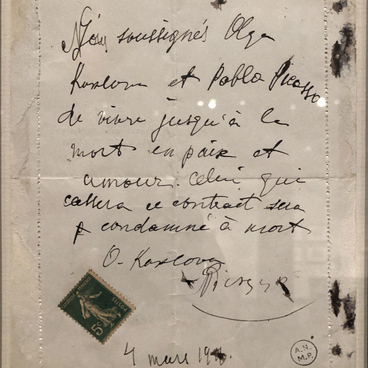 soussignés Olga
Koxlova et Pablo Picasso
de vivre jusqu'à la
mort en paix et
amour. Celui qui
cassera ce contract sera
condamné à mort
O. Koxlova
Picasso
5c
4 mars
A.N.
M.P.